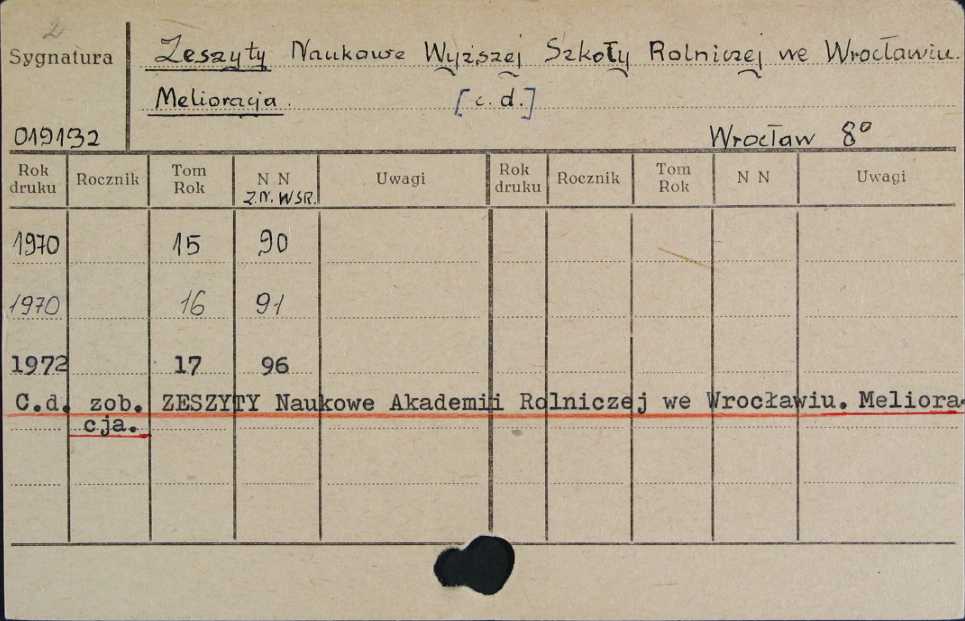 2
Sygnatura Zeszyty Naukowe Wyższej Szkoły Rolniczej we Wrocławiu.
Melioracja. [c. d.]
019132 Wrocław 8°
Rok druku Rocznik Tom Rok N N Z.N. WSR. Uwagi Rok druku Rocznik Tom Rok N N Uwagi
1970 15 90
1970 16 91
1972 17 96
C.d. zob. ZESZYTY Naukowe Akademii Rolniczej we Wrocławiu. Meliora-
cja.